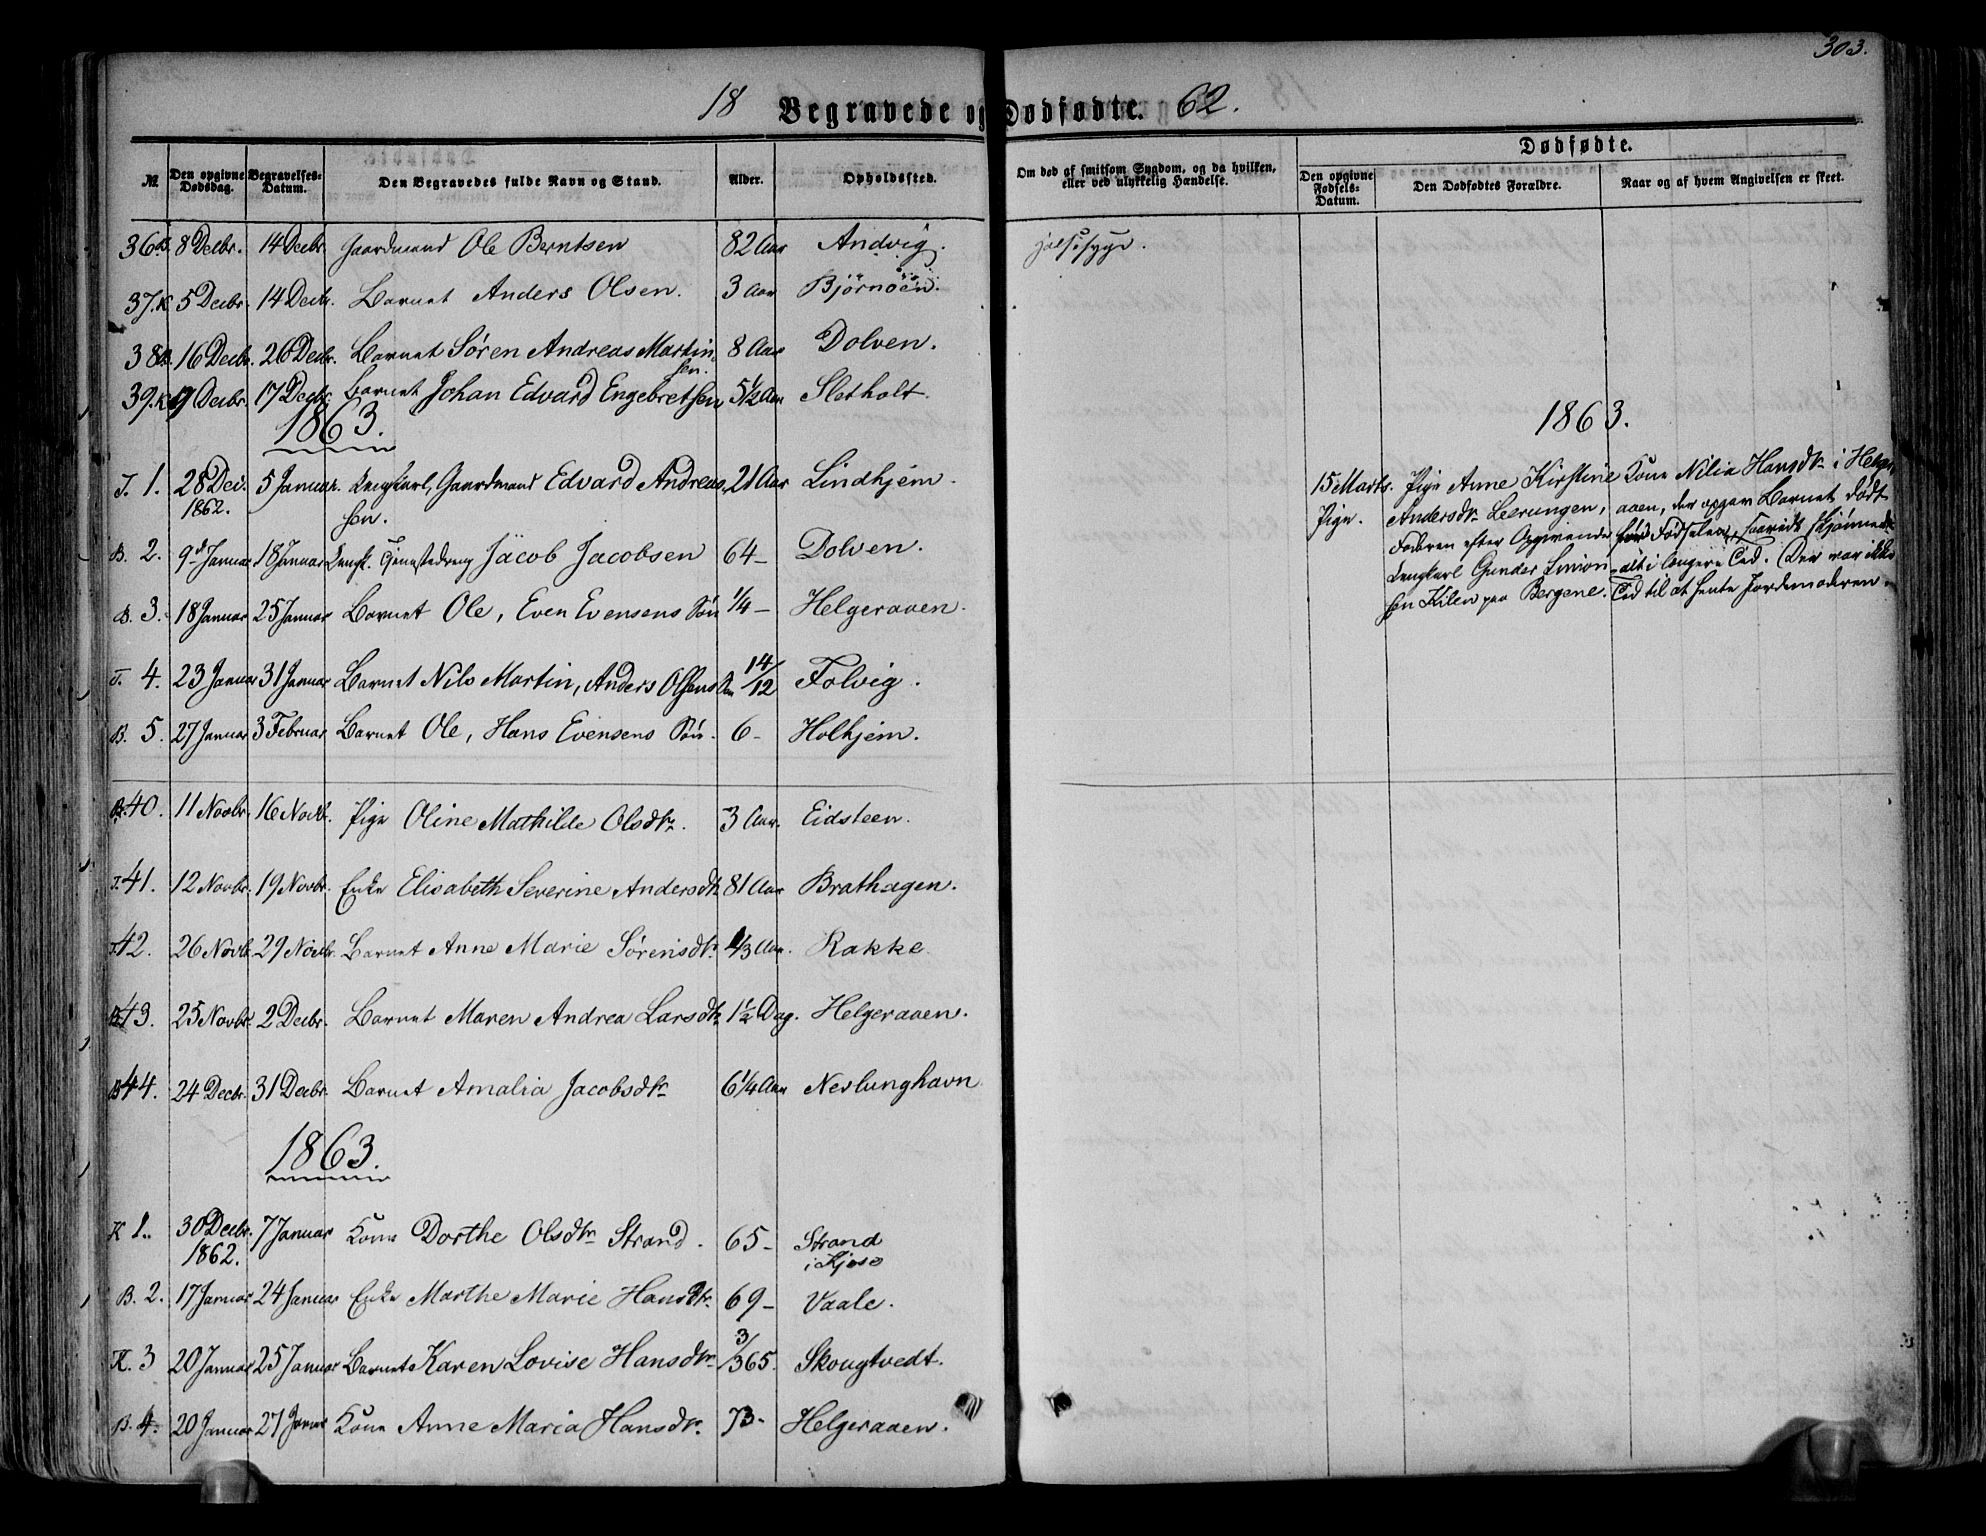 303.
18 Begravede og Dødfødte. 62.
Dødfødte.
№ Den opgivne Dødsdag. Begravelses-Datum. Den Begravedes fulde Navn og Stand. Alder. Opholdssted. Om død af smitsom Sygdom, og da hvilken, eller ved ulykkelig Hændelse. Den opgivne Fødsels-Datum. Den Dødfødtes Forældre. Naar og af hvem Angivelsen er skeet.
36. 8 Decbr. 14 Decbr. Gaardmand Ole Berntsen 82 Aar Andvig.
37. K 5 Decbr. 14 Decbr. Barnet Anders Olsen. 3 Aar Bjørnøen.
38. 16 Decbr. 26 Decbr. Barnet Søren Andreas Martin 8 Aar Dolven.
sen.
39. K 9 Decbr. 17 Decbr. Barnet Johan Edvard Engebretsen 5½ Aar Sletholt.
1863.
T. 1. 28 Dec. 5 Januar. Ungkarl, Gaardmand Edvard Andreas 21 Aar Lindhjem.
1862. sen.
B. 2. 9de Januar 18 Januar Ungk. Tjenestedreng Jacob Jacobsen 64 – Dolven.
B. 3. 18 Januar 25 Januar Barnet Ole, Even Evensens Søn ¼ – Helgeraaen.
T. 4. 23 Januar 31 Januar Barnet Nils Martin, Anders Olsens Søn 14/12 Folvig.
B. 5. 27 Januar 3 Februar Barnet Ole, Hans Evensens Søn. 6 – Holhjem.
B. 40. 11 Novbr. 16 Novbr. Pige Oline Mathilde Olsdtr. 3 Aar. Eidsteen.
T. 41. 12 Novbr. 19 Novbr. Enke Elisabeth Severine Andersdtr. 81 Aar Brathagen.
T. 42. 26 Novbr. 29 Novbr. Barnet Anne Marie Sørensdtr. 1/3 Aar. Rakke.
B. 43. 25 Novbr. 2 Decbr. Barnet Maren Andrea Larsdtr. 1½ Dag. Helgeraaen.
B 44. 24 Decbr. 31 Decbr. Barnet Amalia Jacobsdtr 6¼ Aar Nevlunghavn
1863.
K 1. 30 Decbr. 7 Januar Kone Dorthe Olsdtr Strand. 65 – Strand
1862. i Kjose
B. 2. 17 Januar 24 Januar Enke Marthe Marie Hansdtr. 69 – Vaale.
K. 3 20 Januar 25 Januar Barnet Karen Lovise Hansdtr. 3/365. Skougtvedt.
B. 4. 20 Januar 27 Januar Kone Anne Maria Hansdtr. 73 – Helgeraaen.
1863.
15 Marts. Pige.
Pige Anne Kirstine
Andersdtr Leerungen,
Faderen efter Opgivende
Ungkarl Gunder Simon
sen Kilen paa Bergene.
Kone Nilia Hansdtr i Helger
aaen, der opgav Barnet dødt
før Fødselen, saavidt skjønnedes
alt i længere Tid. Der var ikke
Tid til at hente Jordemoderen.